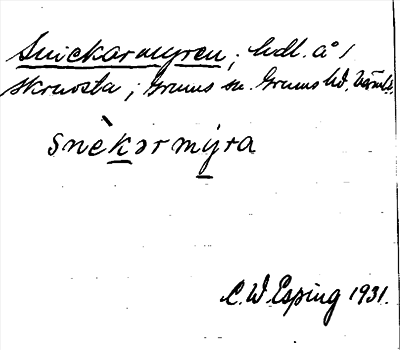 Snickarmyren; hdl. å 1
Skruvsta; Grums sn. Grums hd, Värml.
snèkərmyra
C. W. Esping 1931.